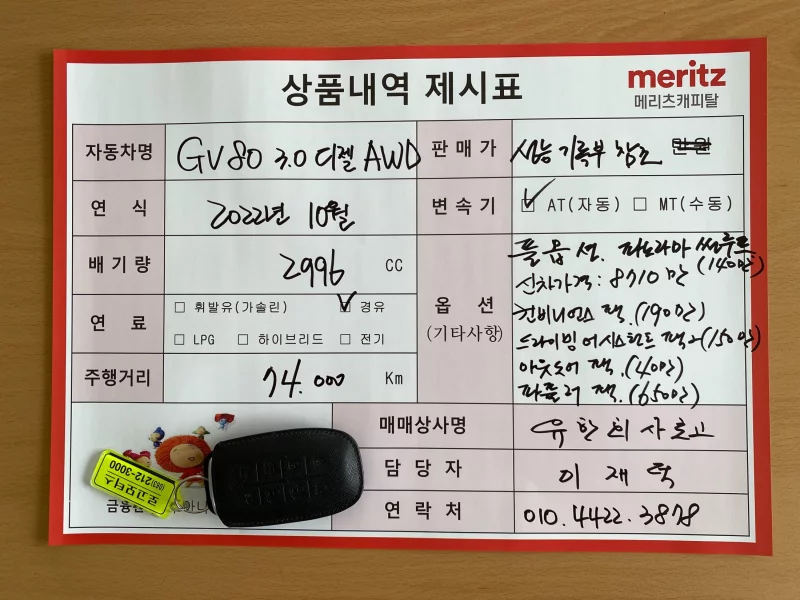 상품내역 제시표
meritz
메리츠캐피탈
자동차명 GV80 3.0 디젤 AWD
판매가 성능기록부 참조 만원
연 식 2022년 10월
변속기 ☑ AT(자동) □ MT(수동)
배기량 2996 CC
연 료 □ 휘발유(가솔린) ☑ 경유
□ LPG □ 하이브리드 □ 전기
주행거리 74.000 Km
옵 션
(기타사항)
풀옵션. 파노라마 썬루프
(140만)
신차가격: 8710만
컨비니언스 팩.(190만)
드라이빙 어시스턴트 팩2(150만)
아웃도어 팩.(40만)
파퓰러 팩.(650만)
매매상사명 유한회사로고
담당자 이재
연락처 010.4422.3878
로고모터스
(063)212-3000
금융